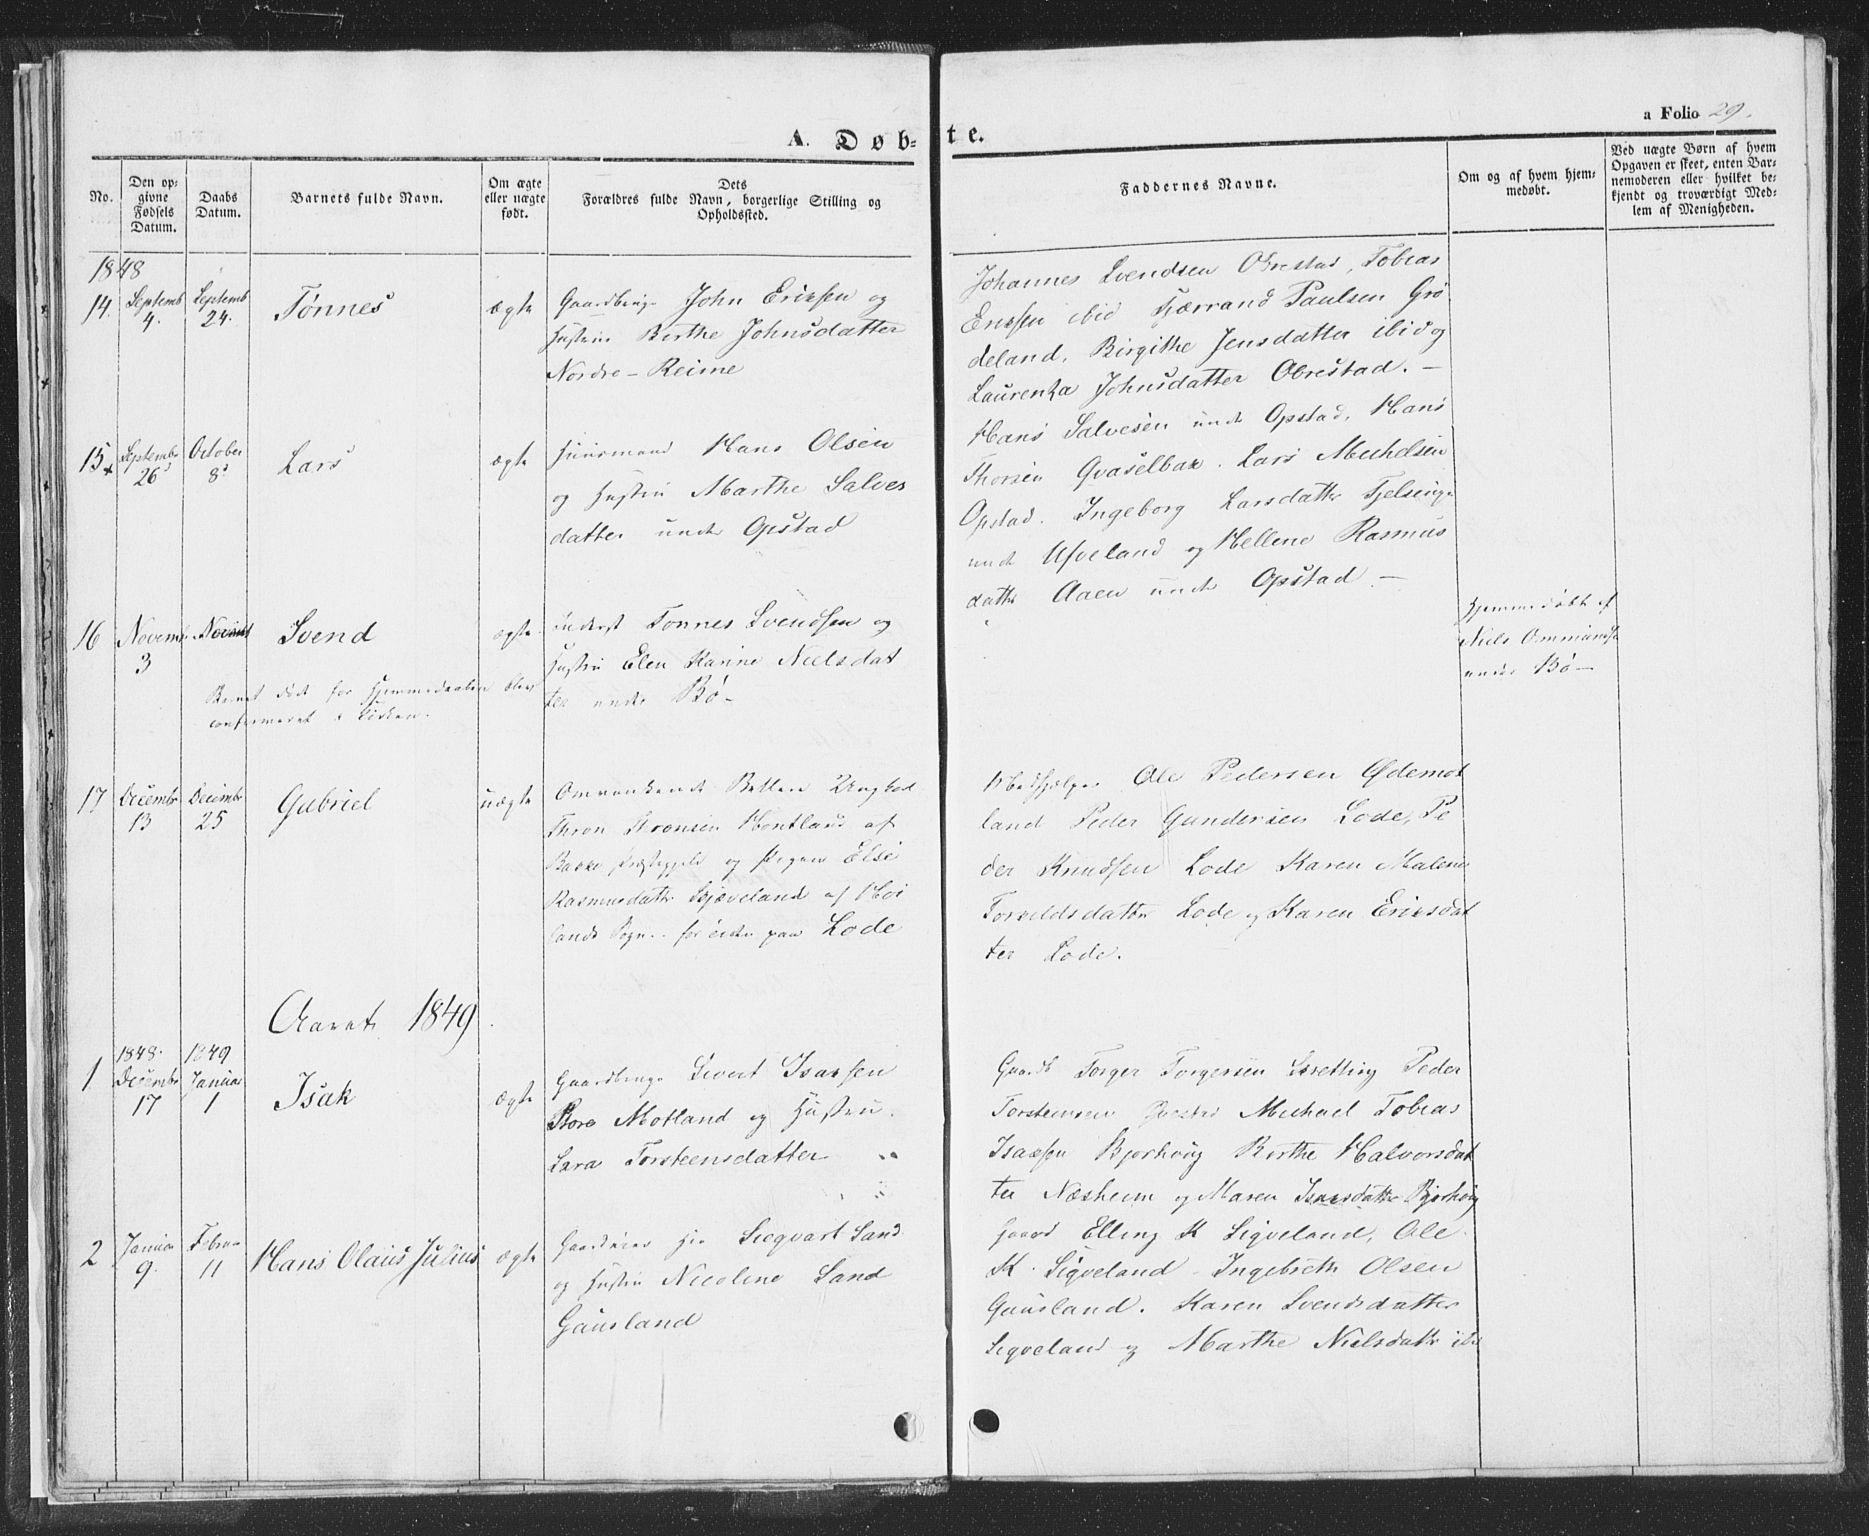 a Folio 29.
A. Døbte.
No.
Den op-
givne
Fødsels
Datum.
Daabs
Datum.
Barnets fulde Navn.
Om ægte
eller uægte
født.
Dets
Forældres fulde Navn, borgerlige Stilling og
Opholdssted.
Faddernes Navne.
Om og af hvem hjem-
medøbt.
Ved uægte Børn af hvem
Opgaven er skeet, enten Bar-
nemoderen eller hvilket be-
kjendt og troværdigt Med-
lem af Menigheden.
1848
14. Septemb 4. Septemb 24. Tønnes ægte
Gaardbruger John Ericsen og
Hustru Berthe Johnsdatter
Nordre-Reime
Johannes Svendsen Obrestad, Tobias
Ericsen ibid Tjerrand Paulsen Grø
deland, Birgithe Jensdatter ibid og
Laurentza Johnsdatter Obrestad. -
15 Septembr 26 October 8 Lars ægte
Huusmand Hans Olsen
og Hustru Marthe Salves
datter under Opstad
Hans Salvesen under Opstad, Hans
Thorsen Qvaselbak. Lars Michelsen
Opstad. Ingeborg Larsdatter
under Ueland og Hellene Rasmus
datter Aaen under Opstad -
16 Novemb 3 Svend ægte
Inderst Tonnes Svendsen og
Hustru Elen Karine Nielsdat
ter under Bø -
Barnet død før Hjemmedaaben blev
confirmeret i Kirken.
Hjemmedøbt af
Niels Ommundsen
under Bø -
17 Decembr 13 Decembr 25 Gabriel uægte
Omvankende Betlere Ungkarl
Thron Thronsen Hontland af
Bakke Præstegjeld og Pigen Else
Rasmusdatter Skjæveland af Høi
lands Sogn. - paa Lode
Medhjælper Ole Pedersen Ødemot
land Peder Gundersen Lode, Pe
der Knudsen Lode Karen Malene
Torvildsdatter Lode og Karen Ericsdat
ter Lode.
Aaret 1849
1 1848. Decembr 17 1849 Januar 1 Isak ægte
Gaardbruger Sivert Isaksen
Store Motland og Hustru
Sara Torsteensdatter
Gaardb Torger Torgersen Sretting Peder
Torsteensen Michael Tobias
Isacsen Bjorhoug Berthe Halvorsdat
ter Næsheim og Maren Isacsdatter Bjorhoug
2 Januar 9. Februar 11 Hans Olaus Julius ægte
Gaardeier Hr Siegvart Sand
og Hustru Nicoline Sand
Gausland
Gaardb Elling K Sigveland, Ole
K. Sigveland - Ingebreth Olsen
Gausland. Karen Svendsdatter
Sigveland og Marthe Nielsdatter ibid